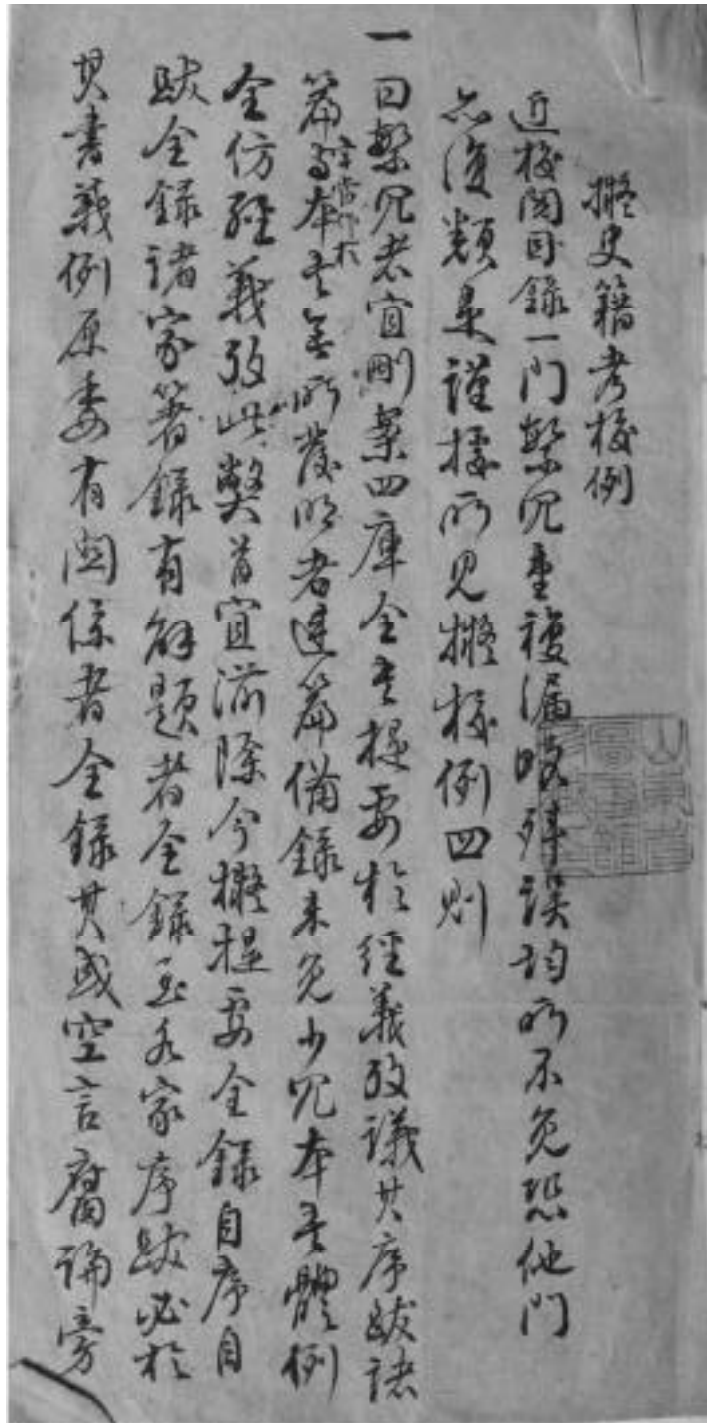 擬史籍考校例
近校閱目錄一門繁冗重複漏略舛誤均所不免恐他門
亦復類是謹據所見擬校例四則
一曰繁冗者宜刪案四庫全書提要於經義攷議其序跋諸
篇與本書無所發明者連篇備錄未免少冗本書體例
字當作於
全仿經義攷此弊首宜滌除今擬提要全錄自序自
跋全錄諸家著錄有解題者全錄至各家序跋必於
其書義例原委有關係者全錄其或空言腐論旁
山東省